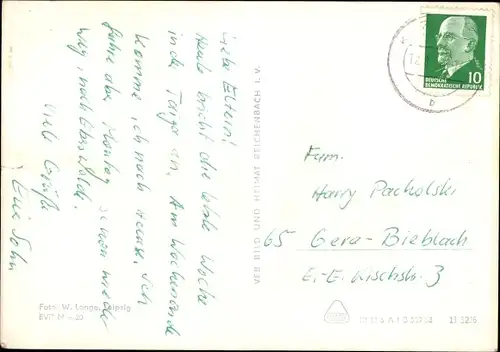 Liebe Eltern!
Heute bricht die letzte Woche
in der Taiga an. Am Wochenende
komme ich nach Hause. Ich
fahre aber Montag schon wieder
weg, nach Eberswalde.
Viele Grüße
Euer Sohn
Foto: W. Lange, Leipzig
VEB BILD UND HEIMAT REICHENBACH I. V.
10
DEUTSCHE
DEMOKRATISCHE REPUBLIK
b
Fam.
Harry Pacholski
65 Gera-Bieblach
E.-E.-Kischstr. 3